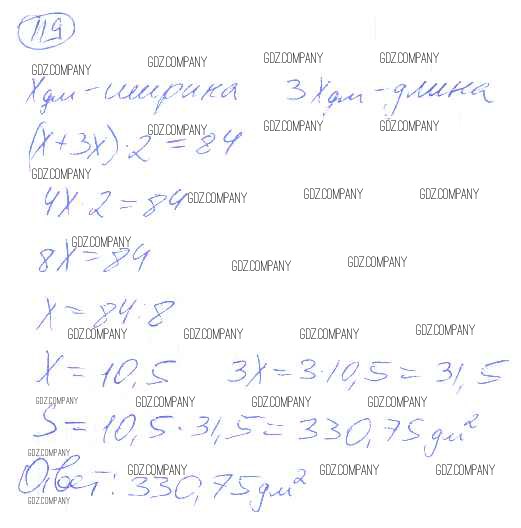 119
GDZ.COMPANY GDZ.COMPANY GDZ.COMPANY GDZ.COMPANY
Xдм - ширина 3Xдм - длина
GDZ.COMPANY GDZ.COMPANY GDZ.COMPANY
(X+3X)·2=84
GDZ.COMPANY
4X·2=84 GDZ.COMPANY GDZ.COMPANY GDZ.COMPANY
GDZ.COMPANY
8X=84 GDZ.COMPANY GDZ.COMPANY
X=84:8
GDZ.COMPANY GDZ.COMPANY GDZ.COMPANY GDZ.COMPANY
X=10,5 3X=3·10,5=31,5
GDZ.COMPANY GDZ.COMPANY GDZ.COMPANY GDZ.COMPANY
S=10,5·31,5=330,75дм²
GDZ.COMPANY
GDZ.COMPANY GDZ.COMPANY GDZ.COMPANY
Ответ: 330,75дм²
GDZ.COMPANY